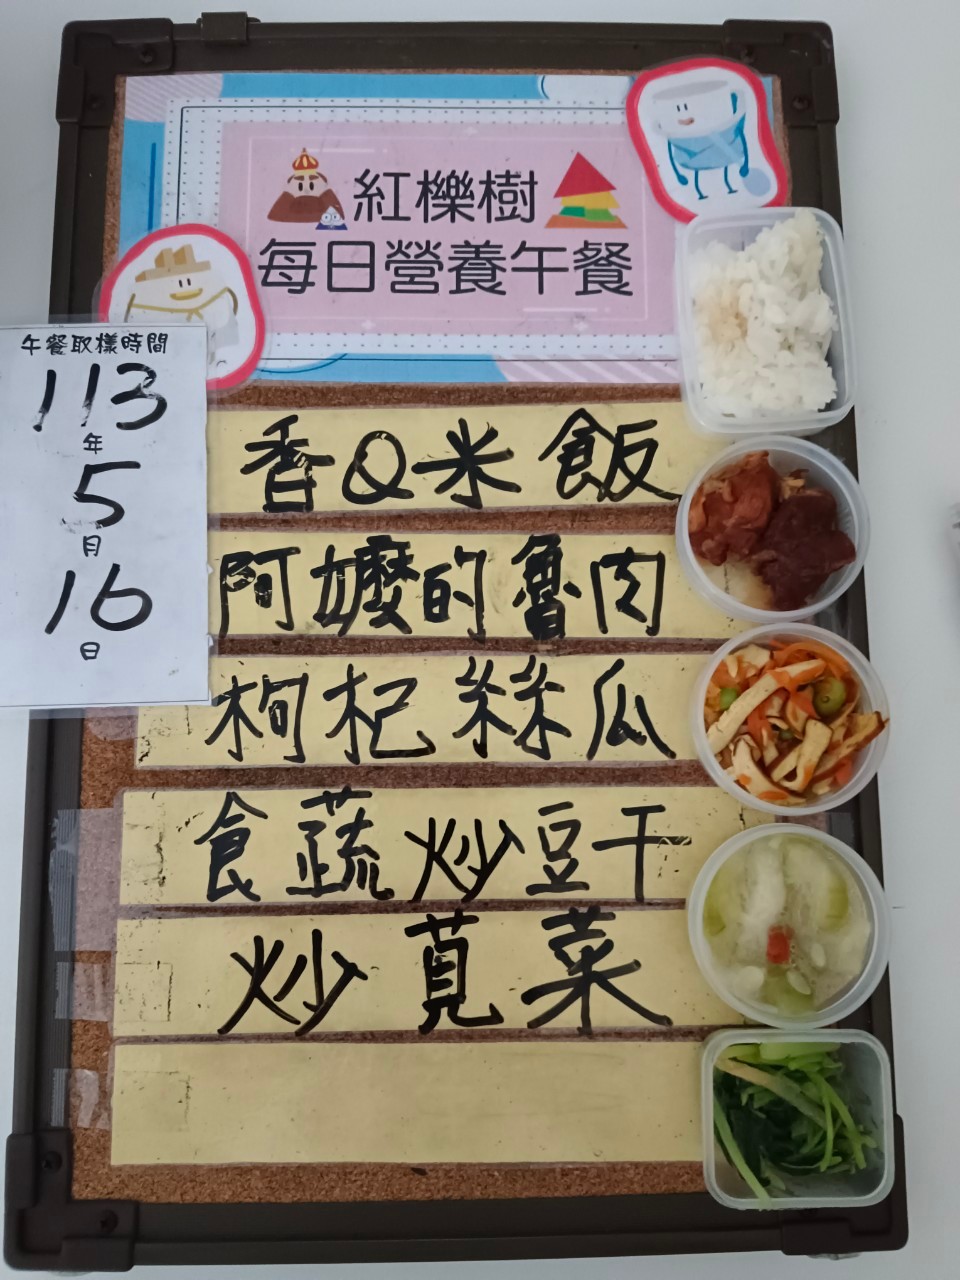 紅櫟樹
每日營養午餐
午餐取樣時間
113
年
5
月
16
日
香Q米飯
阿嬤的魯肉
枸杞絲瓜
食蔬炒豆干
炒莧菜